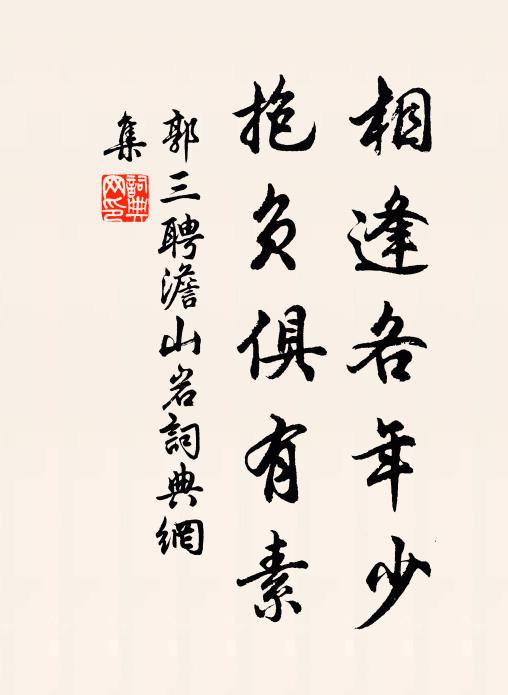 相逢各年少
抱負俱有素
郭三聘澹山岩詞典網
集
詞典網印